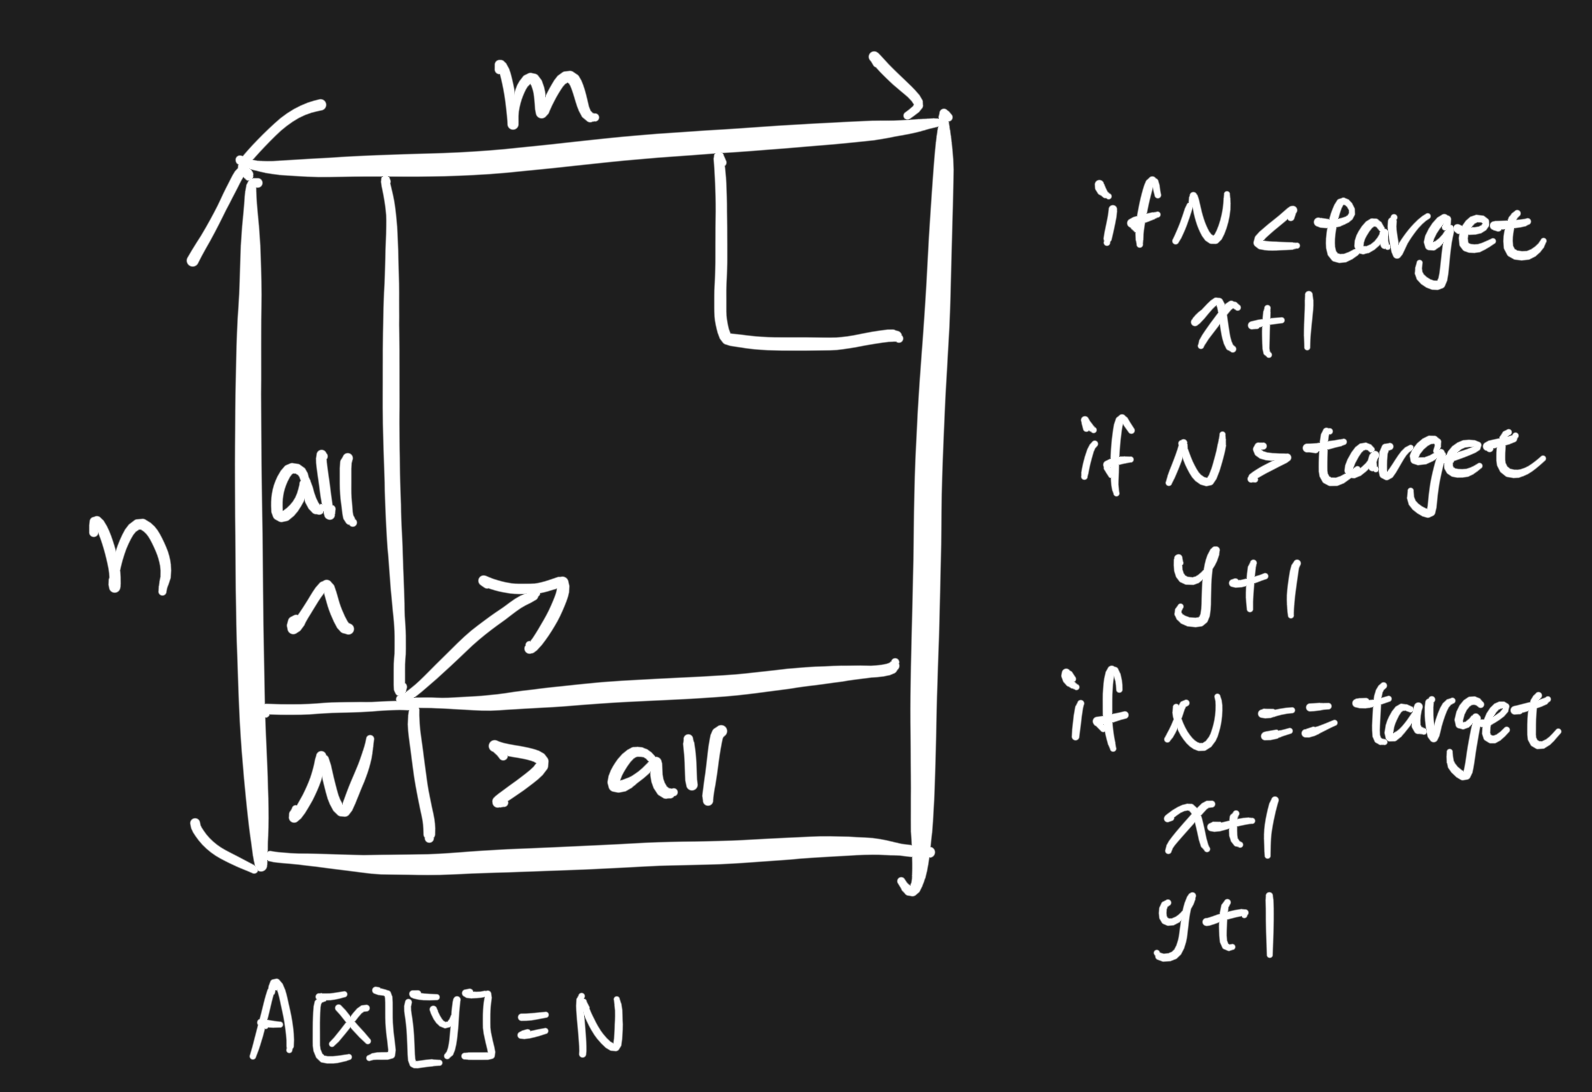 m
n
all
^
N > all
A[x][y] = N
if N < target
x+1
if N > target
y+1
if N == target
x+1
y+1